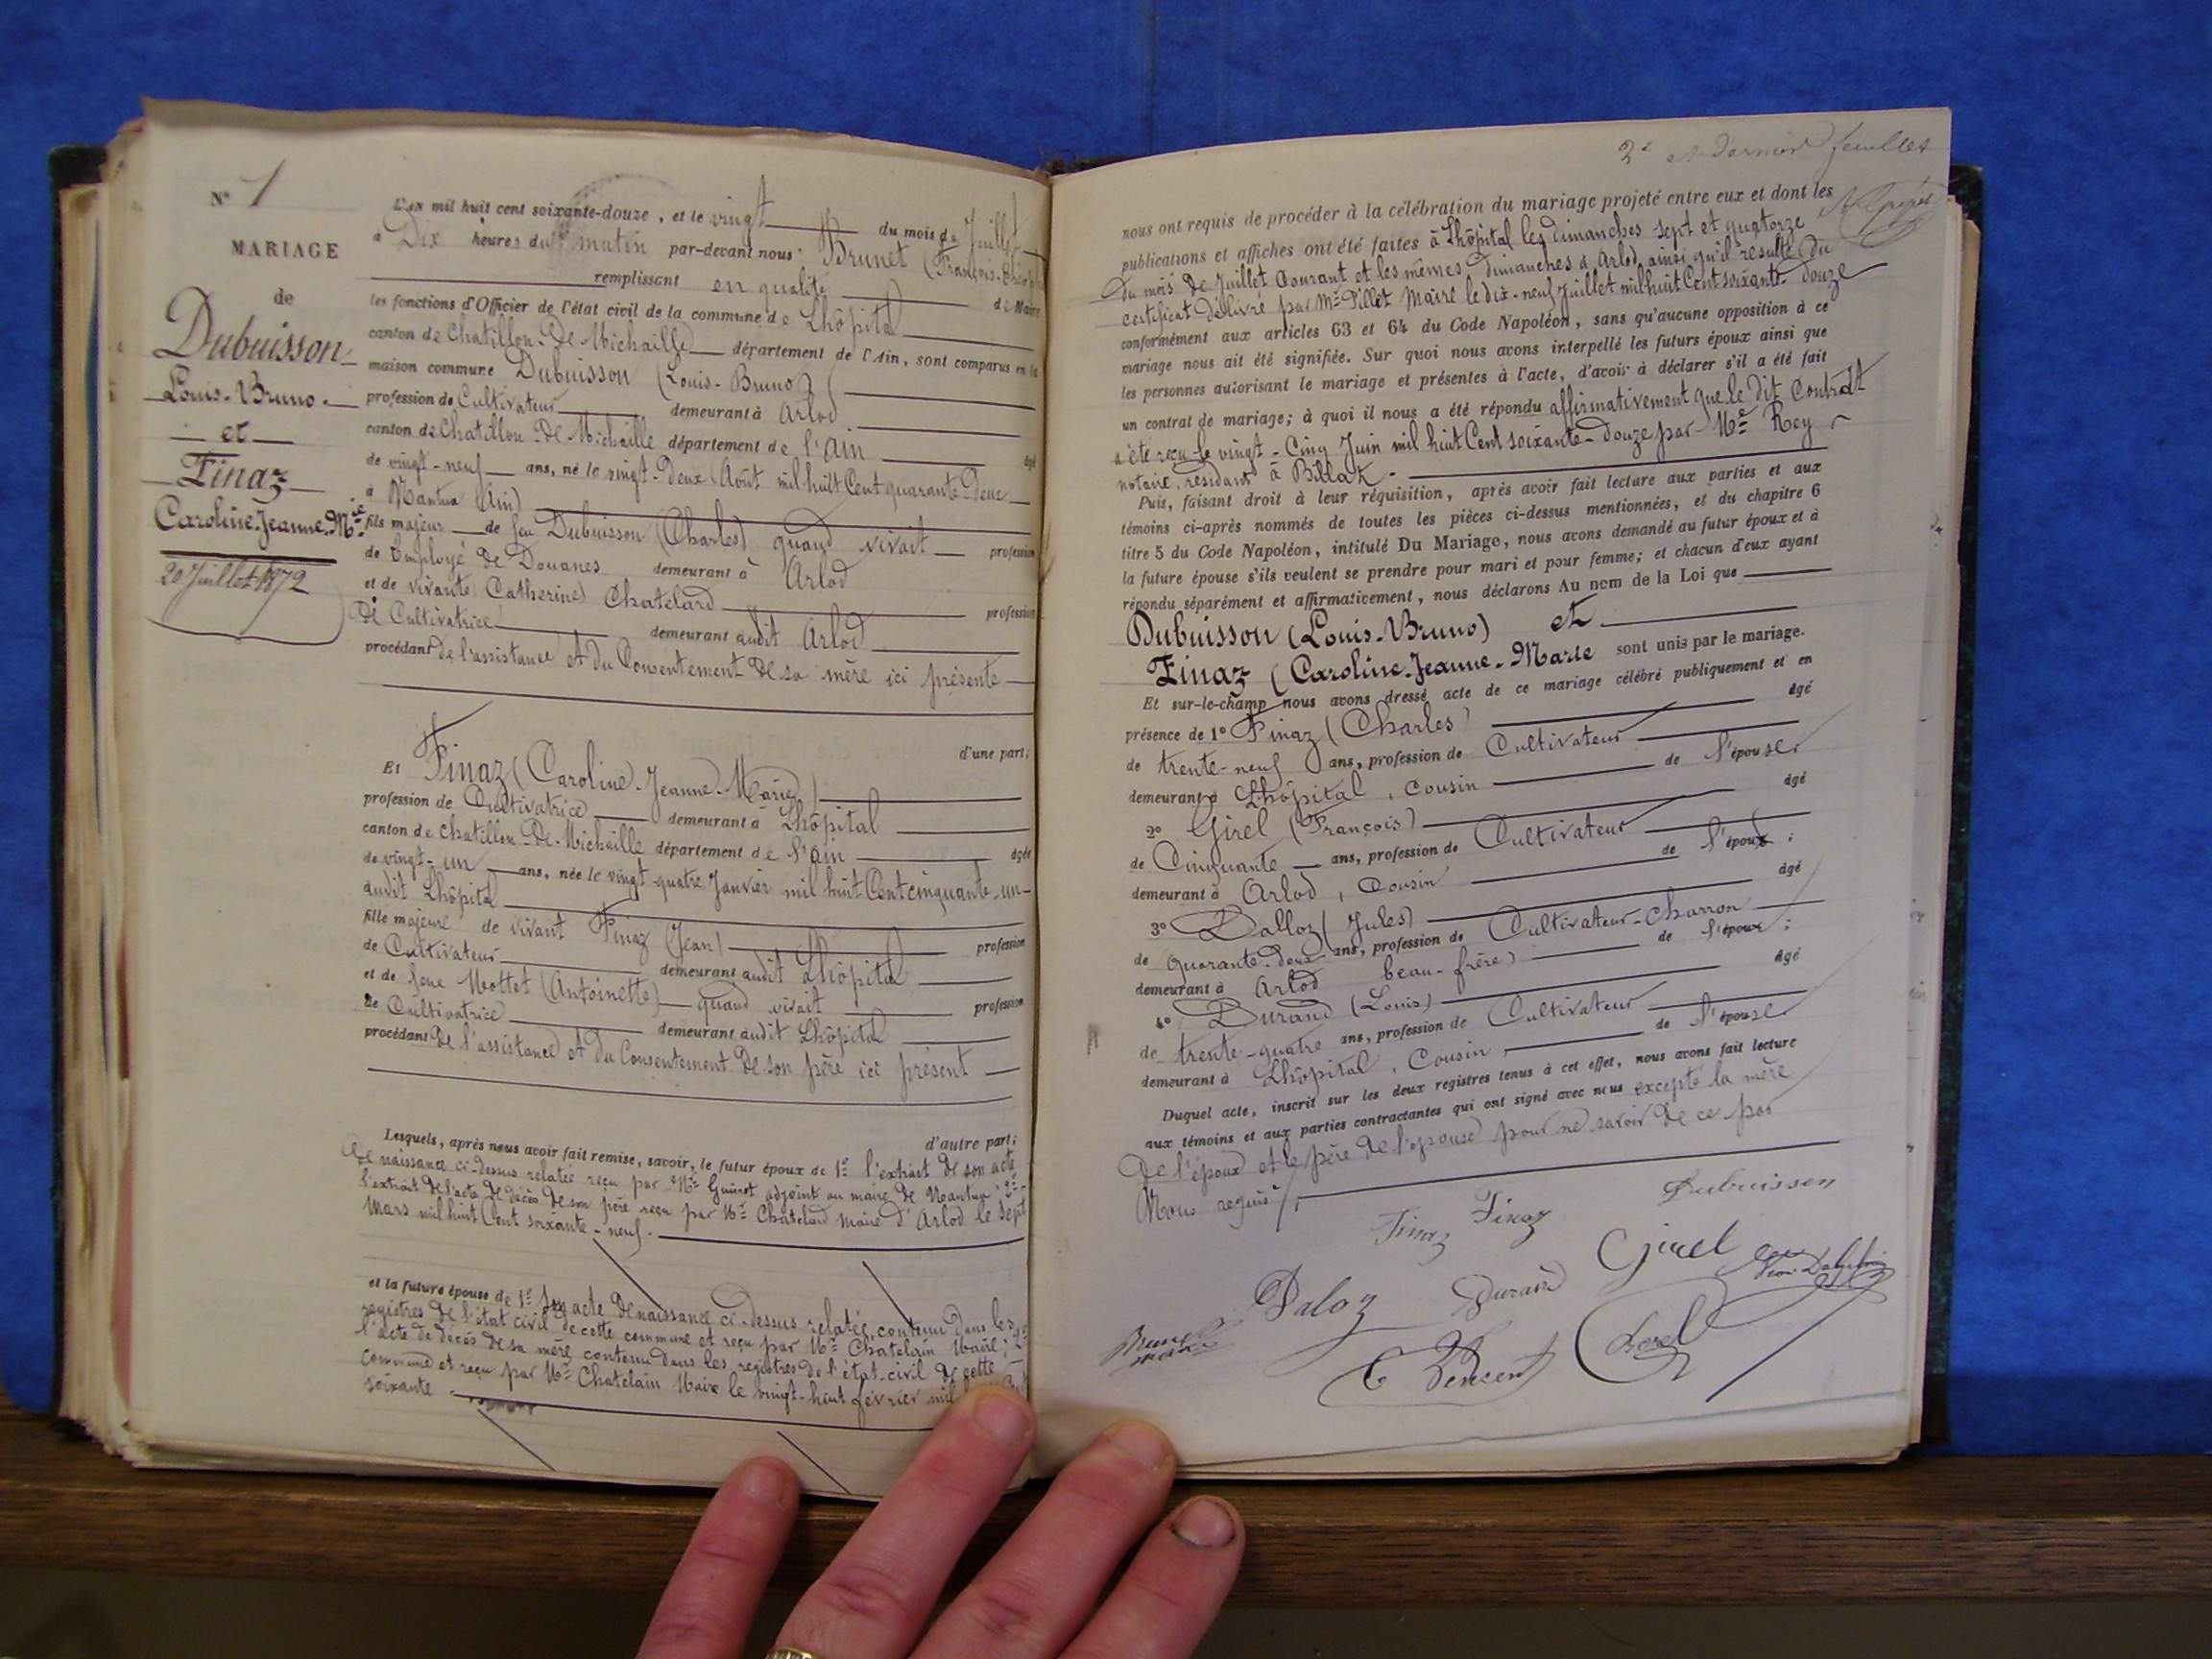 N° 1
MARIAGE
de
Dubuisson
Louis-Bruno.
et
Finaz
Caroline-Jeanne-Mie
20 Juillet 1872
L'AN mil huit cent soixante-douze, et le vingt du mois de Juillet
à Dix heures du matin par-devant nous Brunet (François-
remplissant en qualité de Maire
les fonctions d'Officier de l'état civil de la commune de Lhôpital
canton de Chatillon-de-Michaille département de l'Ain, sont comparus en la
maison commune Dubuisson (Louis-Bruno)
profession de Cultivateur demeurant à Arlod
canton de Chatillon-de-Michaille département de l'Ain âgé
de vingt-neuf ans, né le vingt-deux Août mil huit Cent quarante-Deux
à Nantua (Ain)
fils majeur de feu Dubuisson (Charles) quand vivait profession
de Employé de Douanes demeurant à Arlod
et de vivante (Catherine) Chatelard profession
de Cultivatrice demeurant audit Arlod
procédant de l'assistance et du Consentement de sa mère ici présente
d'une part;
Et Finaz (Caroline-Jeanne-Marie)
profession de Cultivatrice demeurant à Lhôpital
canton de Chatillon-de-Michaille département de l'Ain âgée
de vingt-un ans, née le vingt-quatre Janvier mil huit Cent cinquante-un
audit Lhôpital
fille majeure de vivant Finaz (Jean) profession
de Cultivateur demeurant audit Lhôpital
et de feue Mottet (Antoinette) quand vivait profession
de Cultivatrice demeurant audit Lhôpital
procédant de l'assistance et du Consentement de son père ici présent
d'autre part;
Lesquels, après nous avoir fait remise, savoir, le futur époux de 1° l'extrait de son acte
de naissance ci-dessus relatée reçu par Mr Guinet adjoint au maire de Nantua; 2°
l'extrait de l'acte de décès de son père reçu par Mr Chatelard Maire d'Arlod le sept
Mars mil huit Cent soixante-neuf.
et la future épouse de 1° Son acte de naissance ci-dessus relatée, contenu dans les
registres de l'état civil de cette commune et reçu par Mr Chatelain Maire; 2°
l'acte de décès de sa mère contenu dans les registres de l'état-civil de cette
Commune et reçu par Mr Chatelain Maire le vingt-huit février mil
soixante
2e et Dernier feuillet
nous ont requis de procéder à la célébration du mariage projeté entre eux et dont les
publications et affiches ont été faites à Lhôpital les dimanches sept et quatorze
du mois de Juillet Courant et les mêmes dimanches à Arlod ainsi qu'il résulte du
certificat délivré par Mr Pillet Maire le dix-neuf Juillet mil huit Cent soixante-douze
conformément aux articles 63 et 64 du Code Napoléon, sans qu'aucune opposition à ce
mariage nous ait été signifiée. Sur quoi nous avons interpellé les futurs époux ainsi que
les personnes autorisant le mariage et présentes à l'acte, d'avoir à déclarer s'il a été fait
un contrat de mariage; à quoi il nous a été répondu affirmativement que le dit Contrat
a été reçu le vingt-Cinq Juin mil huit Cent soixante-douze par Me Rey
notaire, résidant à Billiat
Puis, faisant droit à leur réquisition, après avoir fait lecture aux parties et aux
témoins ci-après nommés de toutes les pièces ci-dessus mentionnées, et du chapitre 6
titre 5 du Code Napoléon, intitulé Du Mariage, nous avons demandé au futur époux et à
la future épouse s'ils veulent se prendre pour mari et pour femme; et chacun d'eux ayant
répondu séparément et affirmativement, nous déclarons Au nom de la Loi que
Dubuisson (Louis-Bruno) et
Finaz (Caroline-Jeanne-Marie sont unis par le mariage.
Et sur-le-champ nous avons dressé acte de ce mariage célébré publiquement et en
présence de 1° Finaz (Charles) âgé
de trente-neuf ans, profession de Cultivateur
demeurant à Lhôpital, Cousin de l'épouse
2° Girel (François) âgé
de Cinquante ans, profession de Cultivateur
demeurant à Arlod, Cousin de l'époux;
3° Dalloz (Jules) âgé
de quarante-deux ans, profession de Cultivateur-Charron
demeurant à Arlod beau-frère de l'époux;
4° Durand (Louis) âgé
de trente-quatre ans, profession de Cultivateur
demeurant à Lhôpital, Cousin de l'épouse
Duquel acte, inscrit sur les deux registres tenus à cet effet, nous avons fait lecture
aux témoins et aux parties contractantes qui ont signé avec nous excepté la mère
de l'époux et le père de l'épouse pour ne savoir de ce par
Nous requis
Finaz Finaz Dubuisson
Daloz Durand Girel
Brunet
maire
C Vincent